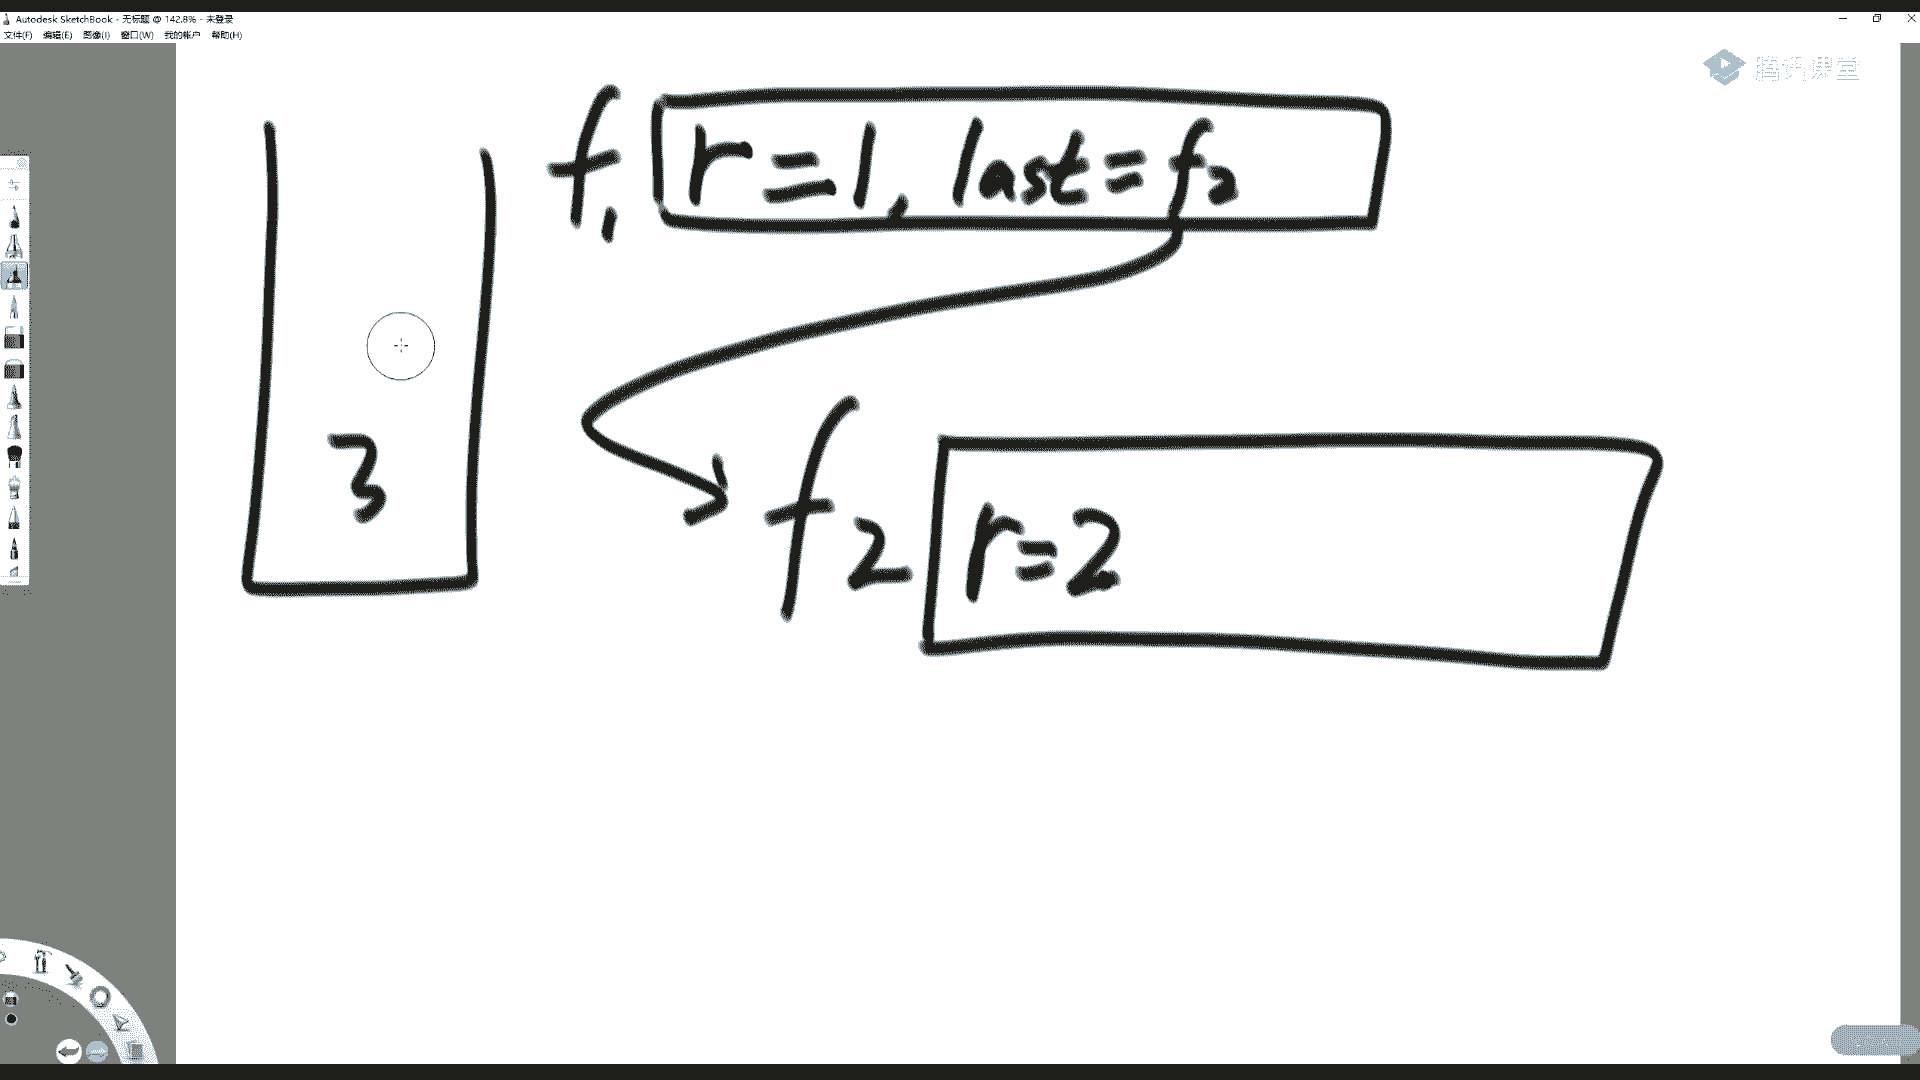 Autodesk SketchBook - 无标题 @ 142.8% - 未登录
文件(F) 编辑(E) 图像(I) 窗口(W) 我的帐户 帮助(H)
腾讯课堂
f1 r=1, last=f2
3
f2 r=2